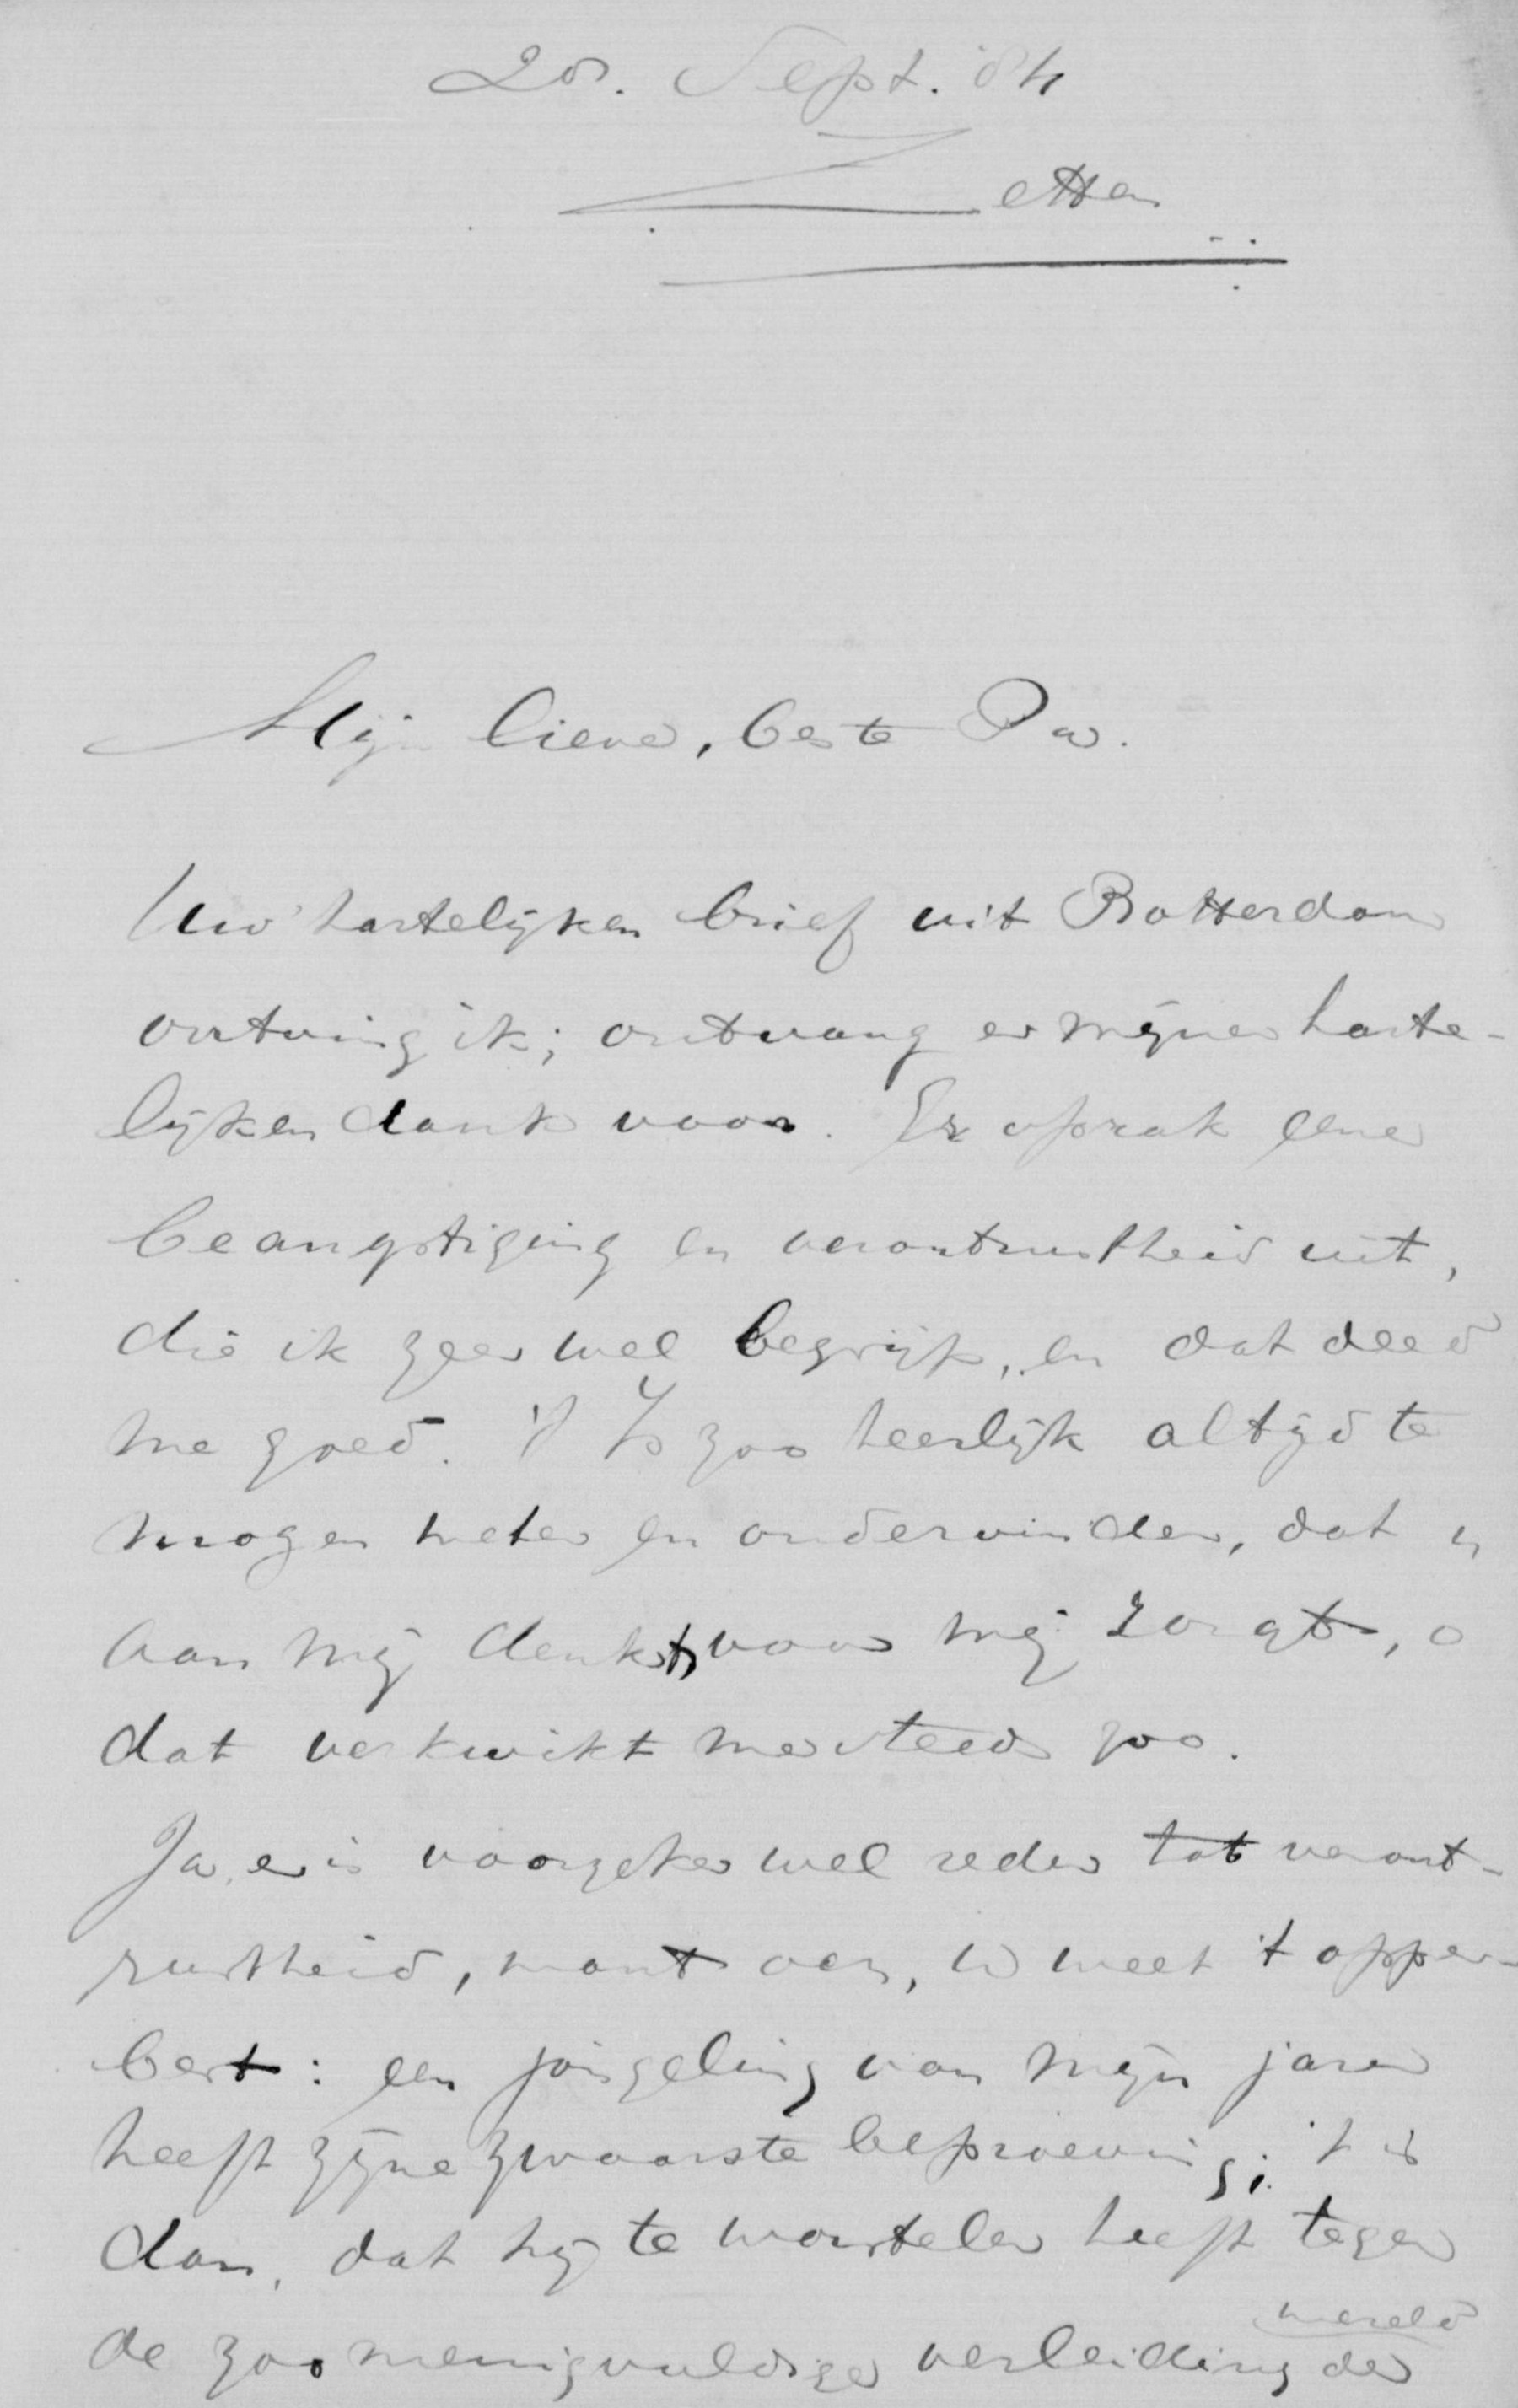 28. Sept. 84
Zetten
Mijn lieve, beste Pa.
Uw hartelijken brief uit Rotterdam
ontving ik; ontvang er mijnen harte-
lijken dank voor. Er sprak eene
beangstiging en verontrustheid uit,
die ik zeer wel begrijp, en dat deed
me goed. 't Is zoo heerlijk altijd te
mogen weten en ondervinden, dat u
aan mij denkt, voor mij zorgt, o
dat verkwikt me steeds zoo.
Ja, er is voorzeker wel reden tot veront-
rustheid, want och, U weet 't opper-
best: een jongeling van mijn jaren
heeft zijne zwaarste beproeving; 't is
dan, dat hij te worstelen heeft tegen
wereld
de zoo menigvuldige verleiding der